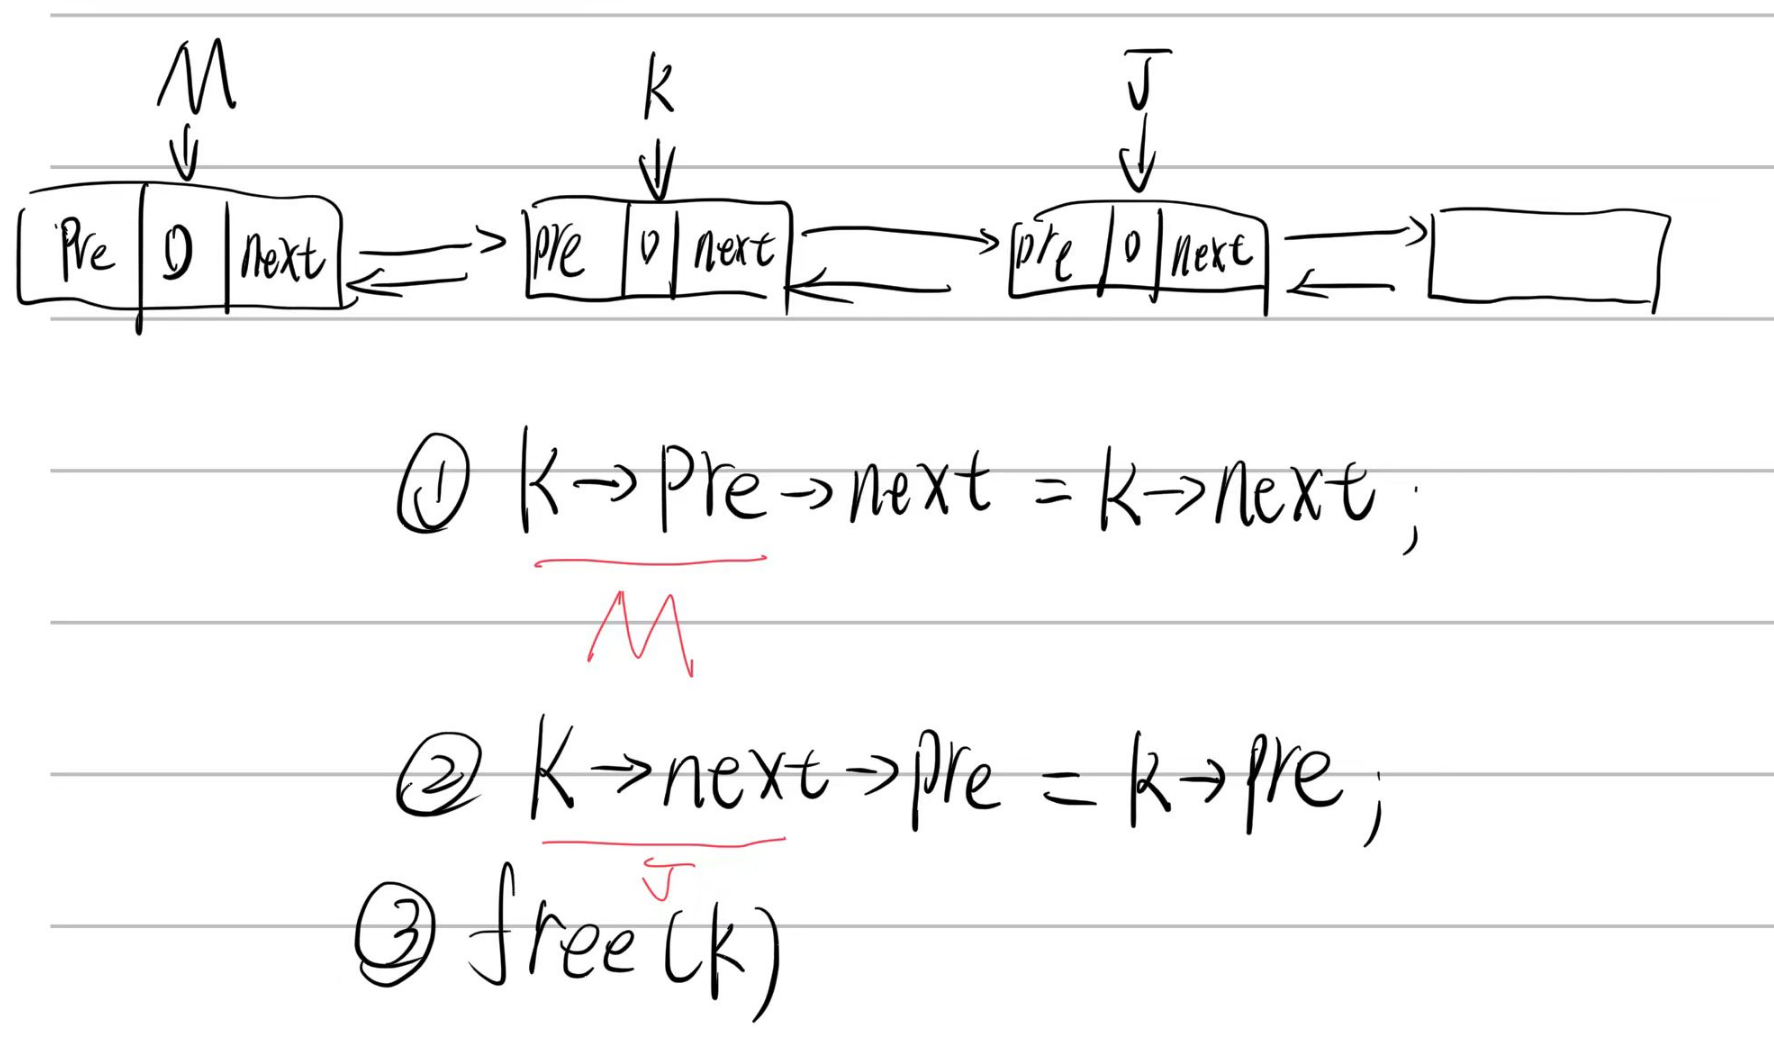 M k J
Pre 0 next pre 0 next pre 0 next
① k→pre→next = k→next;
M
② k→next→pre = k→pre;
J
③ free(k)